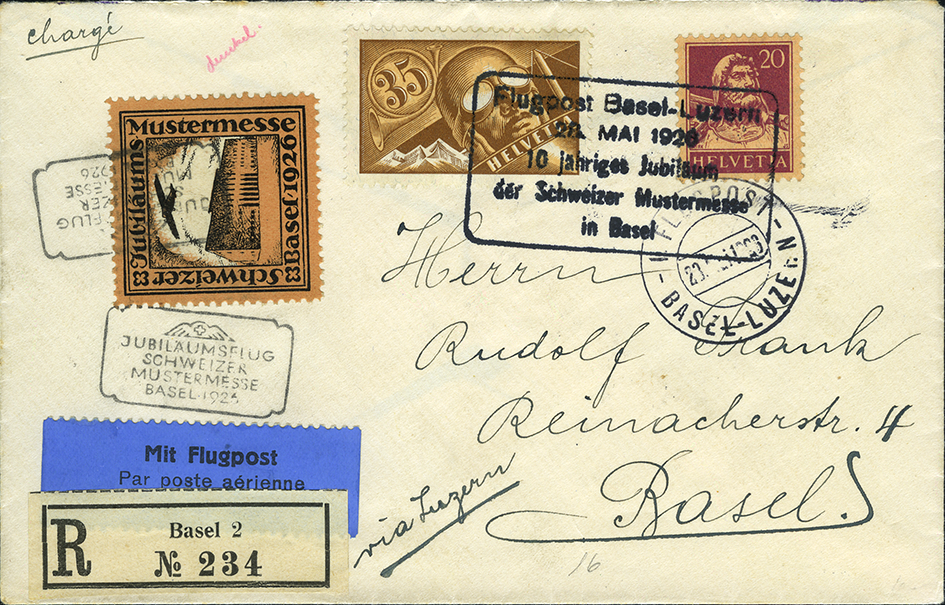 chargé
35
HELVETIA
20
HELVETIA
Flugpost Basel-Luzern
28. MAI 1926
10 jähriges Jubiläum
der Schweizer Mustermesse
in Basel
FLUGPOST
BASEL-LUZERN
Mustermesse
Jubiläums
Basel·1926
Schweizer
JUBILÄUMSFLUG
SCHWEIZER
MUSTERMESSE
BASEL·1926
Herrn
Rudolf Frank
Reinacherstr. 4
Basel
via Luzern
Mit Flugpost
Par poste aérienne
R
Basel 2
№ 234
16